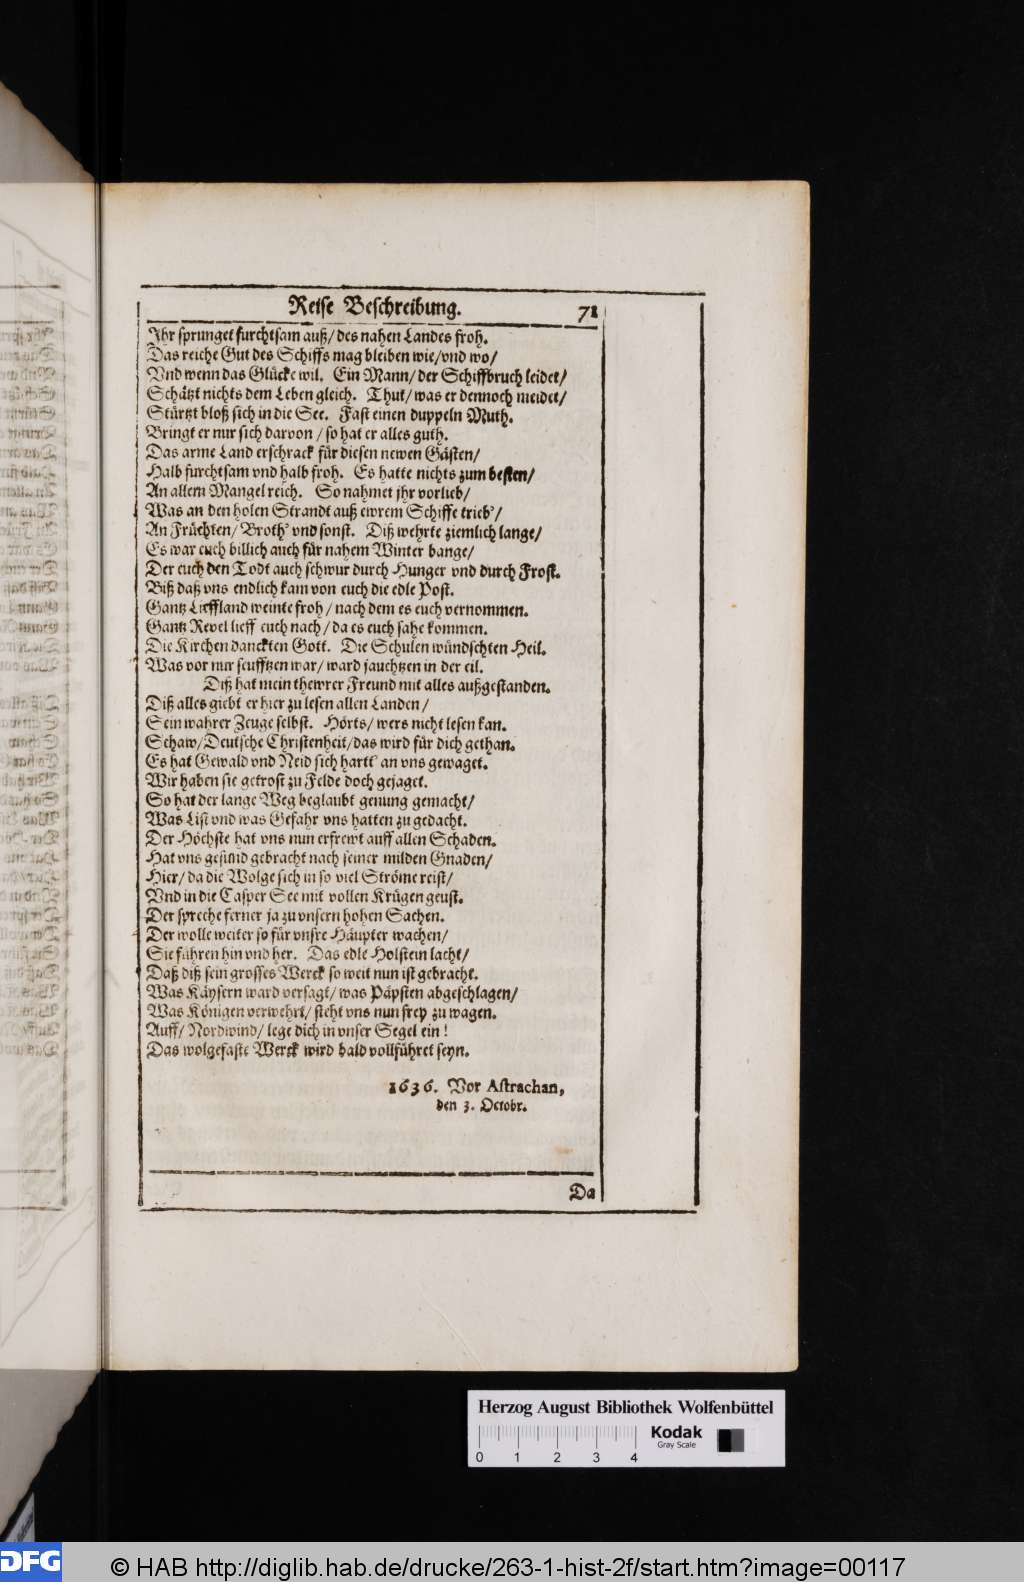 Reise Beschreibung. 71
Ihr sprunget furchtsam auß/ des nahen Landes froh.
Das reiche Gut des Schiffs mag bleiben wie/vnd wo/
Vnd wenn das Glücke wil. Ein Mann/ der Schiffbruch leidet/
Schätzt nichts dem Leben gleich. Thut/ was er dennoch meidet/
Stürtzt bloß sich in die See. Fast einen duppeln Muth.
Bringt er nur sich darvon / so hat er alles guth.
Das arme Land erschrack für diesen newen Gästen/
Halb furchtsam vnd halb froh. Es hatte nichts zum besten/
An allem Mangel reich. So nahmet jhr vorlieb/
Was an den holen Strandt auß ewrem Schiffe trieb'/
An Früchten/ Broth' vnd sonst. Diß wehrte ziemlich lange/
Es war euch billich auch für nahem Winter bange/
Der euch den Todt auch schwur durch Hunger vnd durch Frost.
Biß daß vns endlich kam von euch die edle Post.
Gantz Lieffland weinte froh / nach dem es euch vernommen.
Gantz Revel lieff euch nach / da es euch sahe kommen.
Die Kirchen danckten Gott. Die Schulen wündschten Heil.
Was vor nur seufftzen war/ ward jauchtzen in der eil.
Diß hat mein thewrer Freund mit alles außgestanden.
Diß alles giebt er hier zu lesen allen Landen /
Sein wahrer Zeuge selbst. Hörts/ wers nicht lesen kan.
Schaw/Deutsche Christenheit/das wird für dich gethan.
Es hat Gewald vnd Neid sich hartt' an vns gewaget.
Wir haben sie getrost zu Felde doch gejaget.
So hat der lange Weg beglaubt genung gemacht/
Was List vnd was Gefahr vns hatten zu gedacht.
Der Höchste hat vns nun erfrewt auff allen Schaden.
Hat vns gesund gebracht nach seiner milden Gnaden/
Hier/ da die Wolge sich in so viel Ströme reist/
Vnd in die Casper See mit vollen Krügen geust.
Der spreche ferner ja zu vnsern hohen Sachen.
Der wolle weiter so für vnsre Häupter wachen/
Sie führen hin vnd her. Das edle Holstein lacht/
Daß diß sein grosses Werck so weit nun ist gebracht.
Was Käysern ward versagt/ was Päpsten abgeschlagen/
Was Königen verwehrt/ steht vns nun frey zu wagen.
Auff/ Nordwind/ lege dich in vnser Segel ein !
Das wolgefaste Werck wird bald vollführet seyn.
1636. Vor Astrachan,
den 3. Octobr.
Da
Herzog August Bibliothek Wolfenbüttel
Kodak
Gray Scale
0 1 2 3 4
DFG
© HAB http://diglib.hab.de/drucke/263-1-hist-2f/start.htm?image=00117